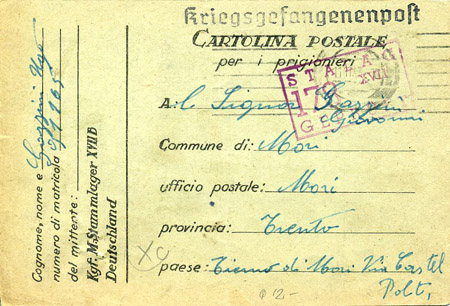 Kriegsgefangenenpost
CARTOLINA POSTALE
per i prigionieri
STALAG XVII
17
GEP
A: Il Signor Grazzini
Giovanni
Comune di: Mori
ufficio postale: Mori
provincia: Trento
paese: Tierno di Mori Via Castel
Palt,
Cognome, nome e Ugo
numero di matricola
del mittente:
Kgf. M. Stammlager XVII B
Deutschland
XC